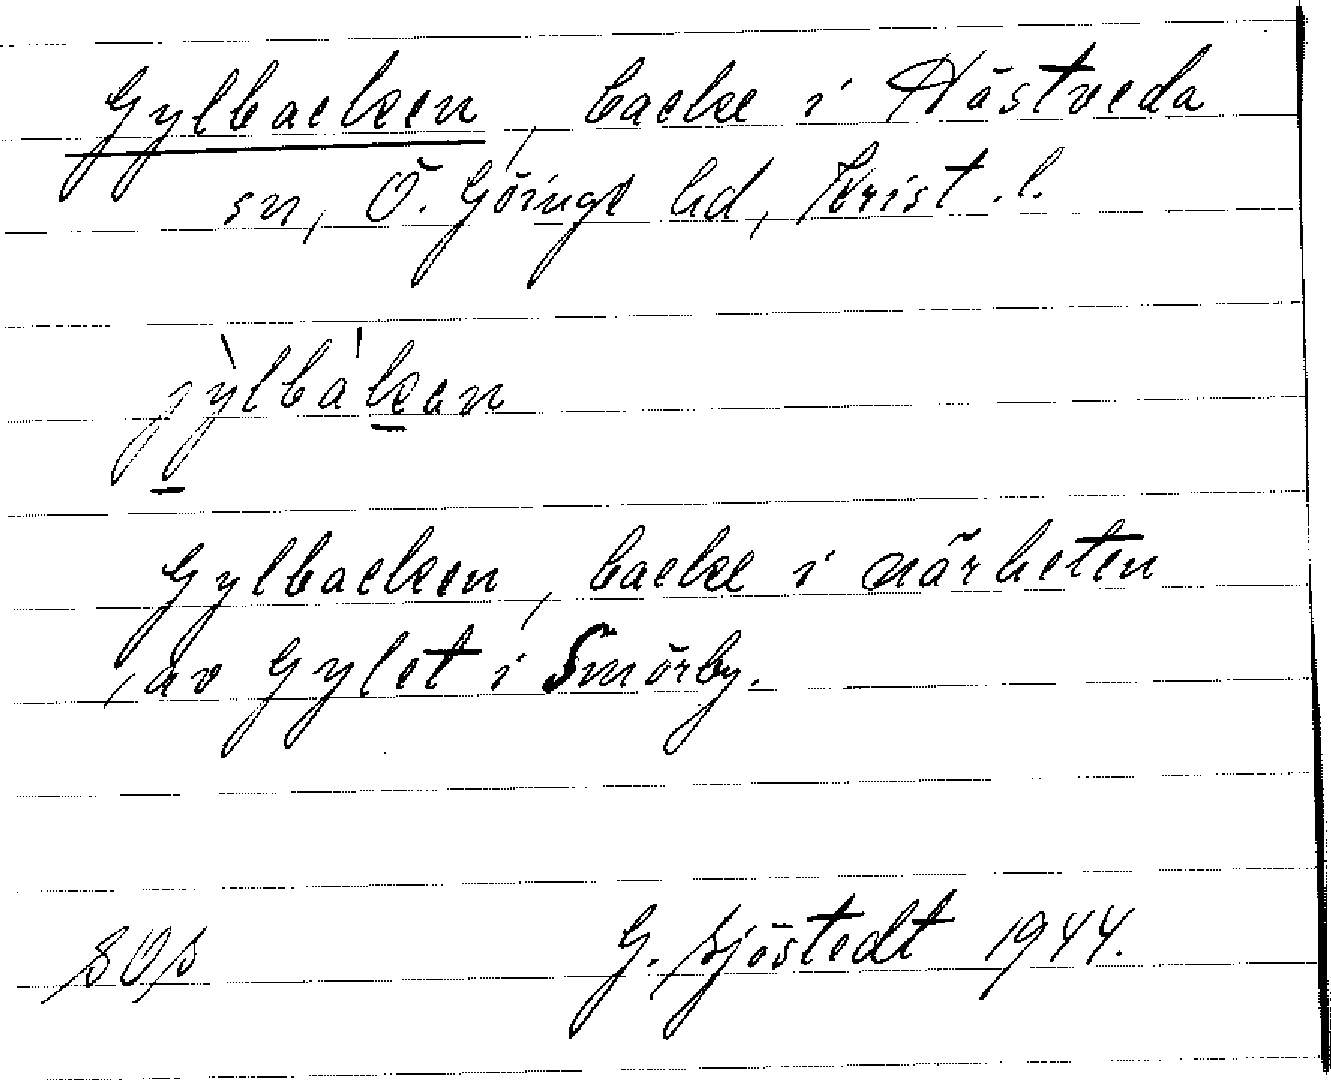 Gylbacken, backe i Hästveda
sn, Ö. Göinge hd, Krist. l.
jỳlba'ken
Gylbacken, backe i närheten
av Gylet i Smörby.
SOS G. Sjöstedt 1944.